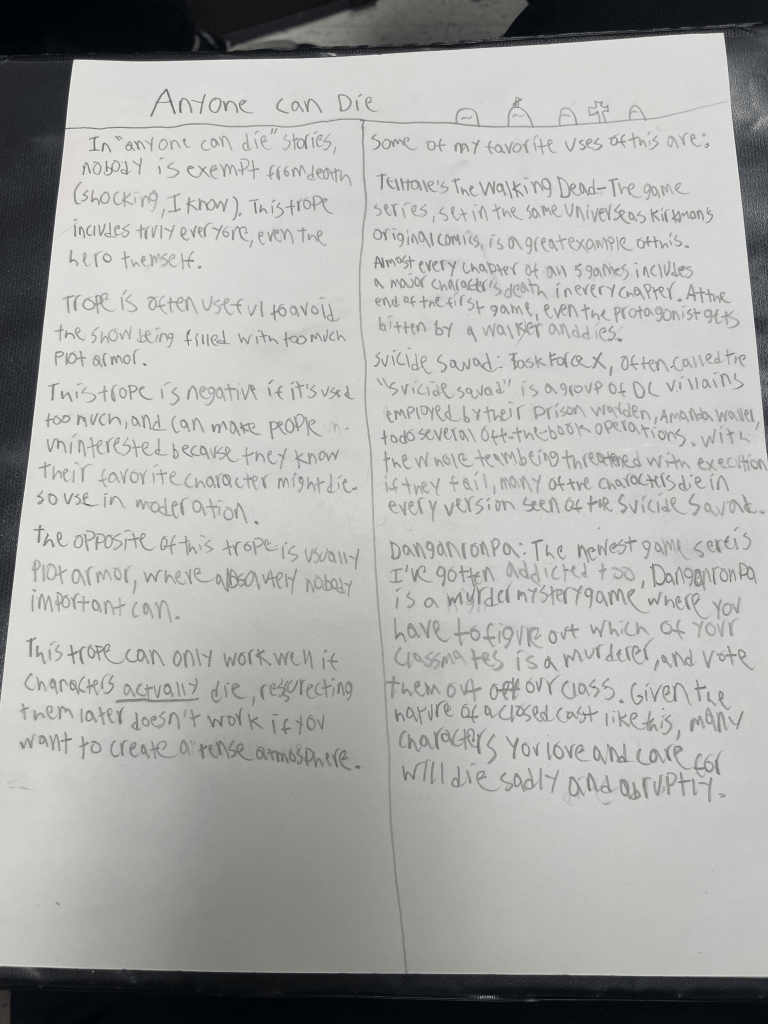 Anyone can Die
In "anyone can die" stories,
nobody is exempt from death
(shocking, I know). This trope
includes truly everyone, even the
hero themself.
Trope is often useful to avoid
the show being filled with too much
Plot armor.
This trope is negative if it's used
too much, and can make people
uninterested because they know
their favorite character might die-
so use in moderation.
The opposite of this trope is usually
Plot armor, where absolutely nobody
important can.
This trope can only work well if
characters actually die, resurecting
them later doesn't work if you
want to create a tense atmosphere.
Some of my favorite uses of this are:
Telltale's The Walking Dead-The game
series, set in the same universe as Kirkman's
original comics, is a great example of this.
Almost every chapter of all 5 games includes
a major character's death in every chapter. At the
end of the first game, even the protagonist gets
bitten by a walker and dies.
Suicide Squad: Task Force X, often called the
"Suicide squad" is a group of DC villains
employed by their prison warden, Amanda Waller,
to do several off-the-book operations. With
the whole team being threatened with execution
if they fail, many of the characters die in
every version seen of the Suicide Squad.
Danganronpa: The newest game sereis
I've gotten addicted too, Danganronpa
is a murder mystery game where you
have to figure out which of your
classmates is a murderer, and vote
them out off our class. Given the
nature of a closed cast like this, many
characters you love and care for
will die sadly and abruptly.